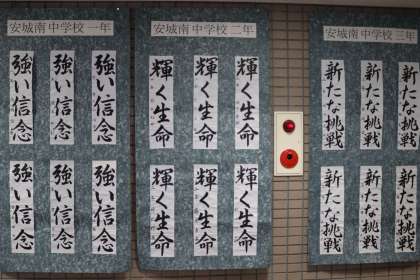 安城南中学校 一年
強い信念
強い信念
強い信念
強い信念
強い信念
強い信念
安城南中学校 二年
輝く生命
輝く生命
輝く生命
輝く生命
輝く生命
輝く生命
安城南中学校 三年
新たな挑戦
新たな挑戦
新たな挑戦
新たな挑戦
新たな挑戦
新たな挑戦